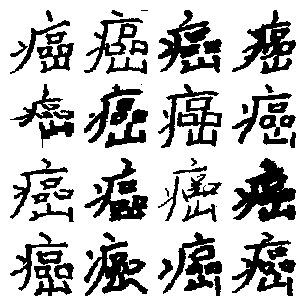 癌癌癌癌
癌癌癌癌
癌癌癌癌
癌癌癌癌